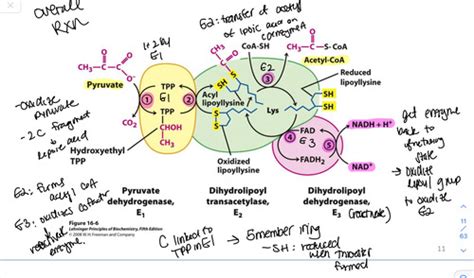 overall
rxn
E2: transfer of acetyl
of lipoic acid on
coenzyme A
1+2 by
E1
CoA-SH
CH₃
S-CoA
Acetyl-CoA
CH₃
Pyruvate
TPP
E1
TPP
CO₂
CHOH
CH₃
Hydroxyethyl
TPP
1
2
Acyl
lipoyllysine
3
E2
Lys
SH
SH
Reduced
lipoyllysine
Oxidized
lipoyllysine
4
FAD
E3
FADH₂
5
NADH + H⁺
NAD⁺
- oxidize
pyruvate
- 2C fragment
→ lipoic acid
E2: forms
acetyl CoA
E3: oxidizes cofactor
enzyme.
get enzyme
back to
state
→ oxidize
lipoyl group
to oxidize
E2
Pyruvate
dehydrogenase,
E₁
Dihydrolipoyl
transacetylase,
E₂
Dihydrolipoyl
dehydrogenase,
E₃
Figure 16-6
Lehninger Principles of Biochemistry, Fifth Edition
© 2008 W. H. Freeman and Company
C linked to
TPP in E1
→ 5 member ring
→ -SH: reduced
when thioester
formed
11
11
63